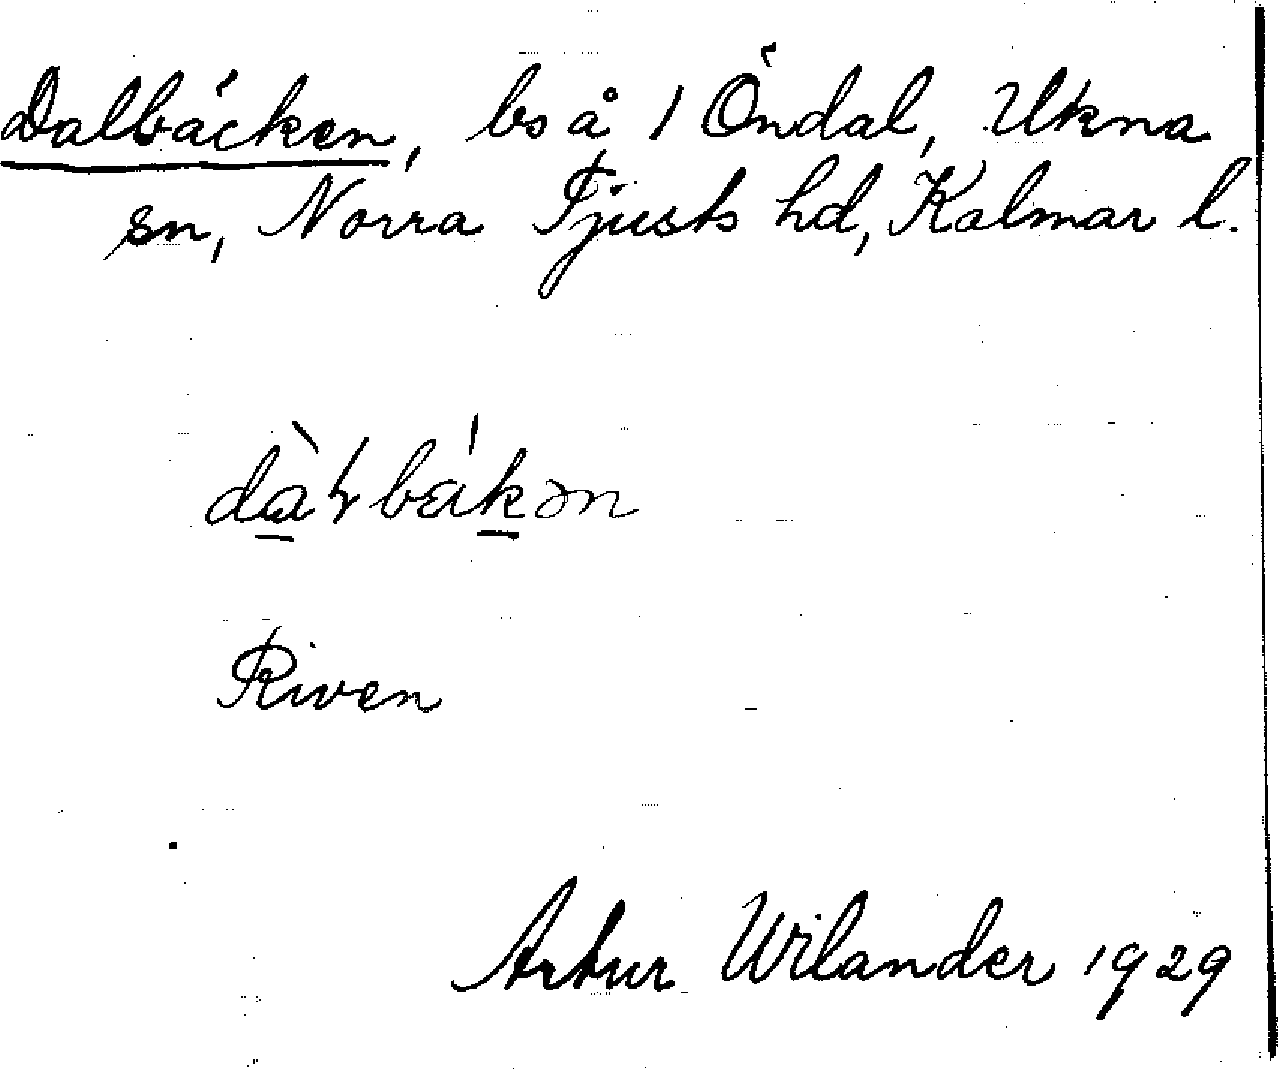 Dalbäcken, bs å 1 Öndal, Ukna
sn, Norra Tjusts hd, Kalmar l.
dàɫbækən
Riven
Artur Wilander 1929